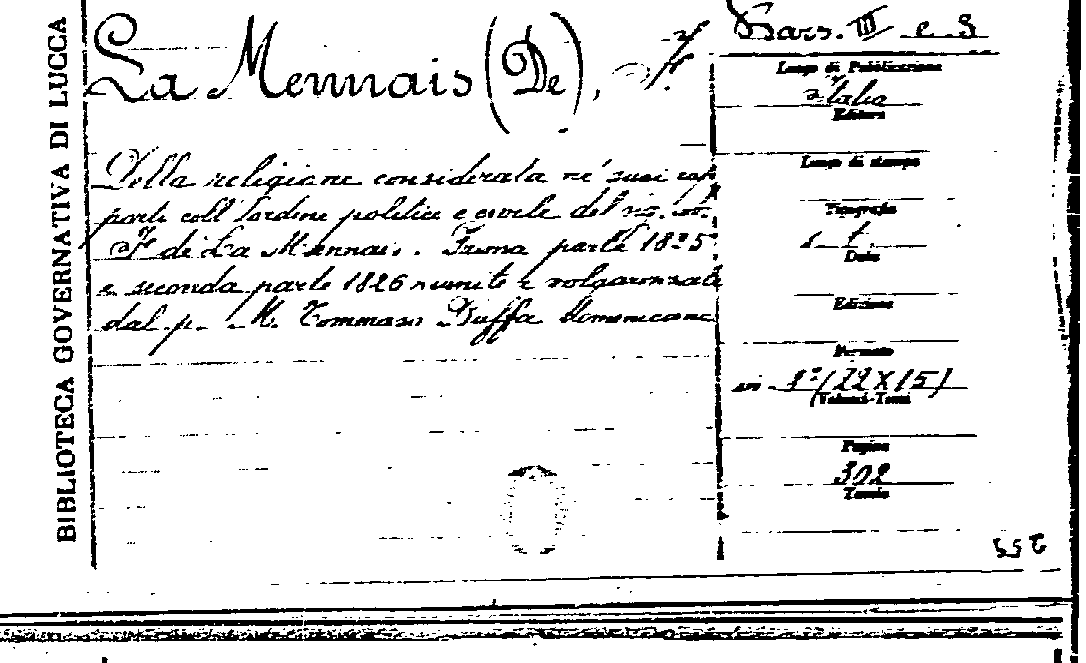 BIBLIOTECA GOVERNATIVA DI LUCCA
La Mennais (De), F.
Della religione considerata ne' suoi rap
porti coll'ordine politico e civile del sig. ab.
F. de La Mennais. Prima parte 1825
e seconda parte 1826 riunite e volgarizzate
dal p. M. Tommaso Buffa domenicano
Bars. III e 8
Luogo di Pubblicazione
Italia
Editore
Luogo di stampa
Tipografia
s. t.
Data
Edizione
Formato
in-8° (22 X 15)
(Volumi-Tomi
Pagine
302
Tavole